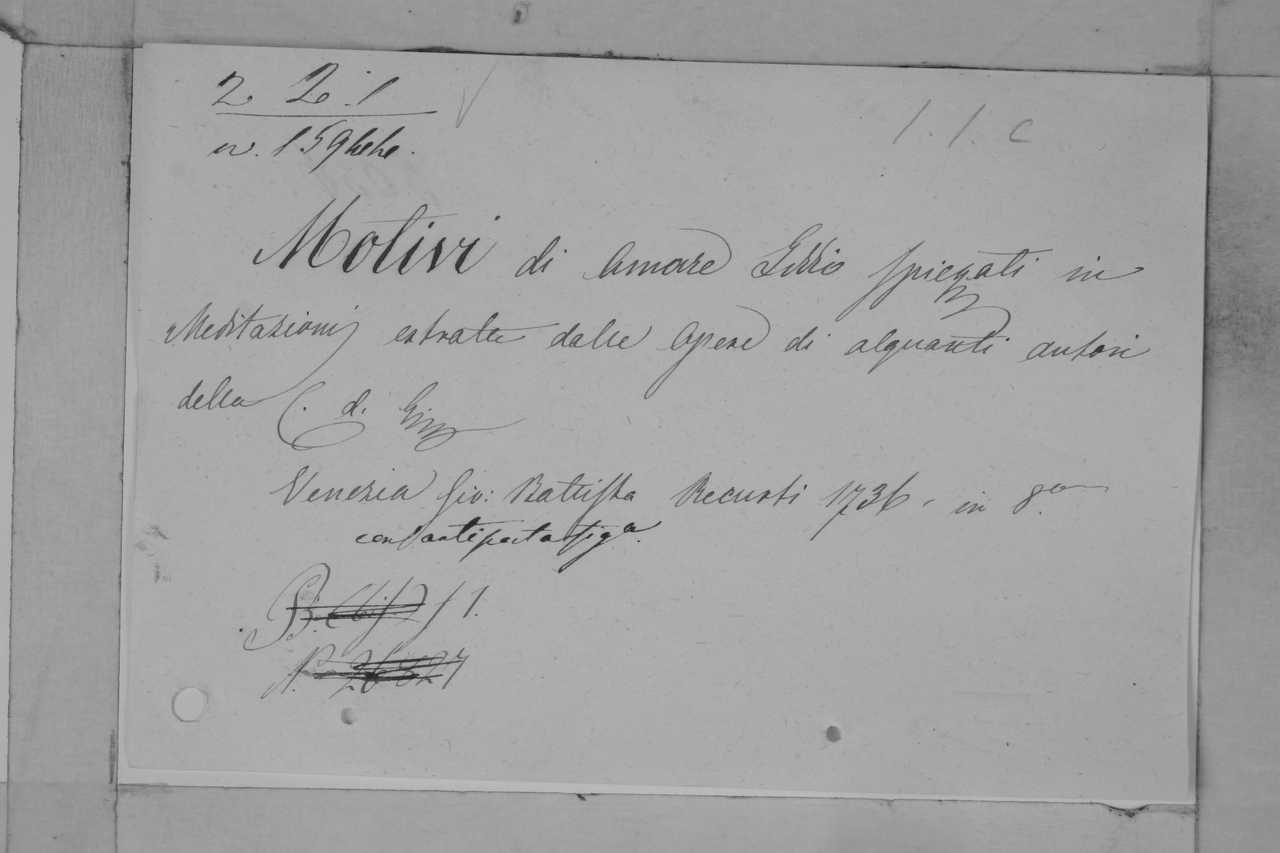 2. 2. 1
1. 1. c
Motivi di Amare Gesù spiegati in
Meditazioni estratte dalle opere di alquanti autori
della C. d. Gesù
Venezia Gio: Battista Recurti 1736. in 8.º
con antiporta fig.ª